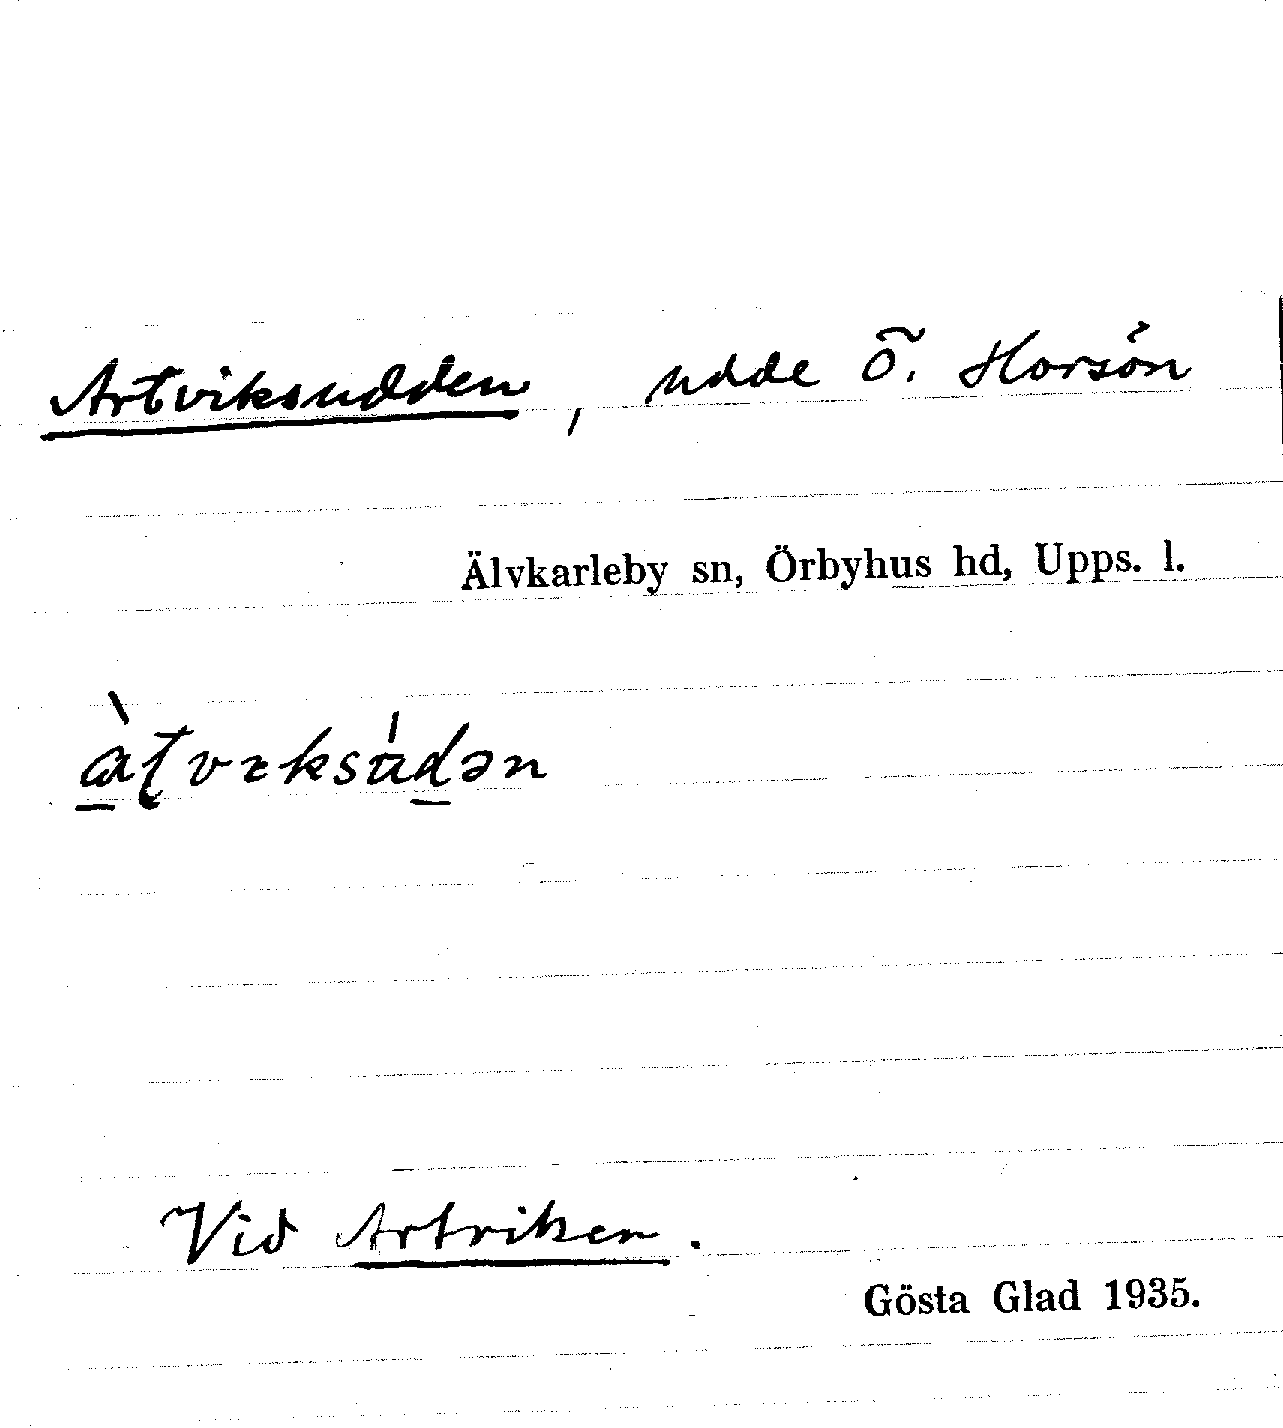 Artviksudden, udde Ö. Horsön
Älvkarleby sn, Örbyhus hd, Upps. l.
Vid Artviken.
Gösta Glad 1935.